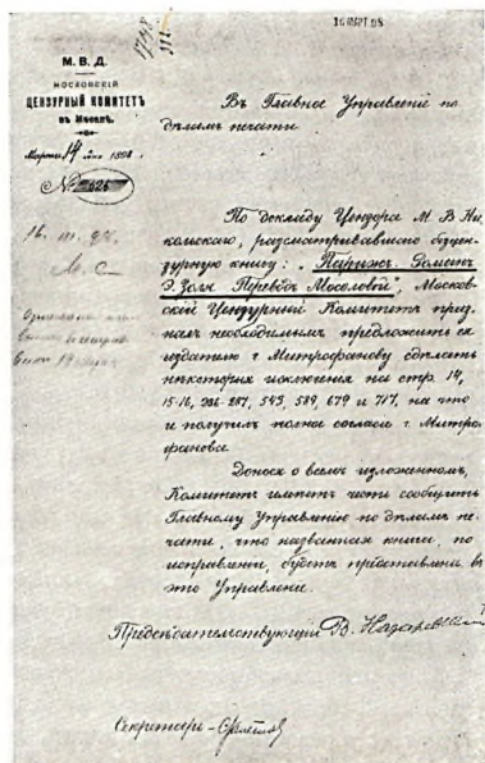 1748
16 МАРТ 98
М. В. Д.
МОСКОВСКІЙ
ЦЕНЗУРНЫЙ КОМИТЕТЪ
въ Москвѣ.
Марта 14 дня 1898 г.
№ 626
Въ Главное Управленіе по
дѣламъ печати
По докладу Цензора М. В. Ни
кольскаго, разсматривавшаго безцен-
зурную книгу: „Парижъ. Романъ
Э. Золя Переводъ Мосоловой", Москов-
скій Цензурный Комитетъ приз-
налъ необходимымъ предложить ея
издателю г. Митрофанову сдѣлать
нѣкоторыя исключенія на стр. 14,
15-16, 286-287, 543, 589, 679 и 717, на что
и получилъ полное согласіе г. Митро
фанова.
Донося о всемъ изложенномъ,
Комитетъ имѣетъ честь сообщить
Главному Управленію по дѣламъ пе-
чати, что названная книга, по
исправленіи, будетъ представлена въ
это Управленіе.
Предсѣдательствующій В. Назаревскій
Секретарь